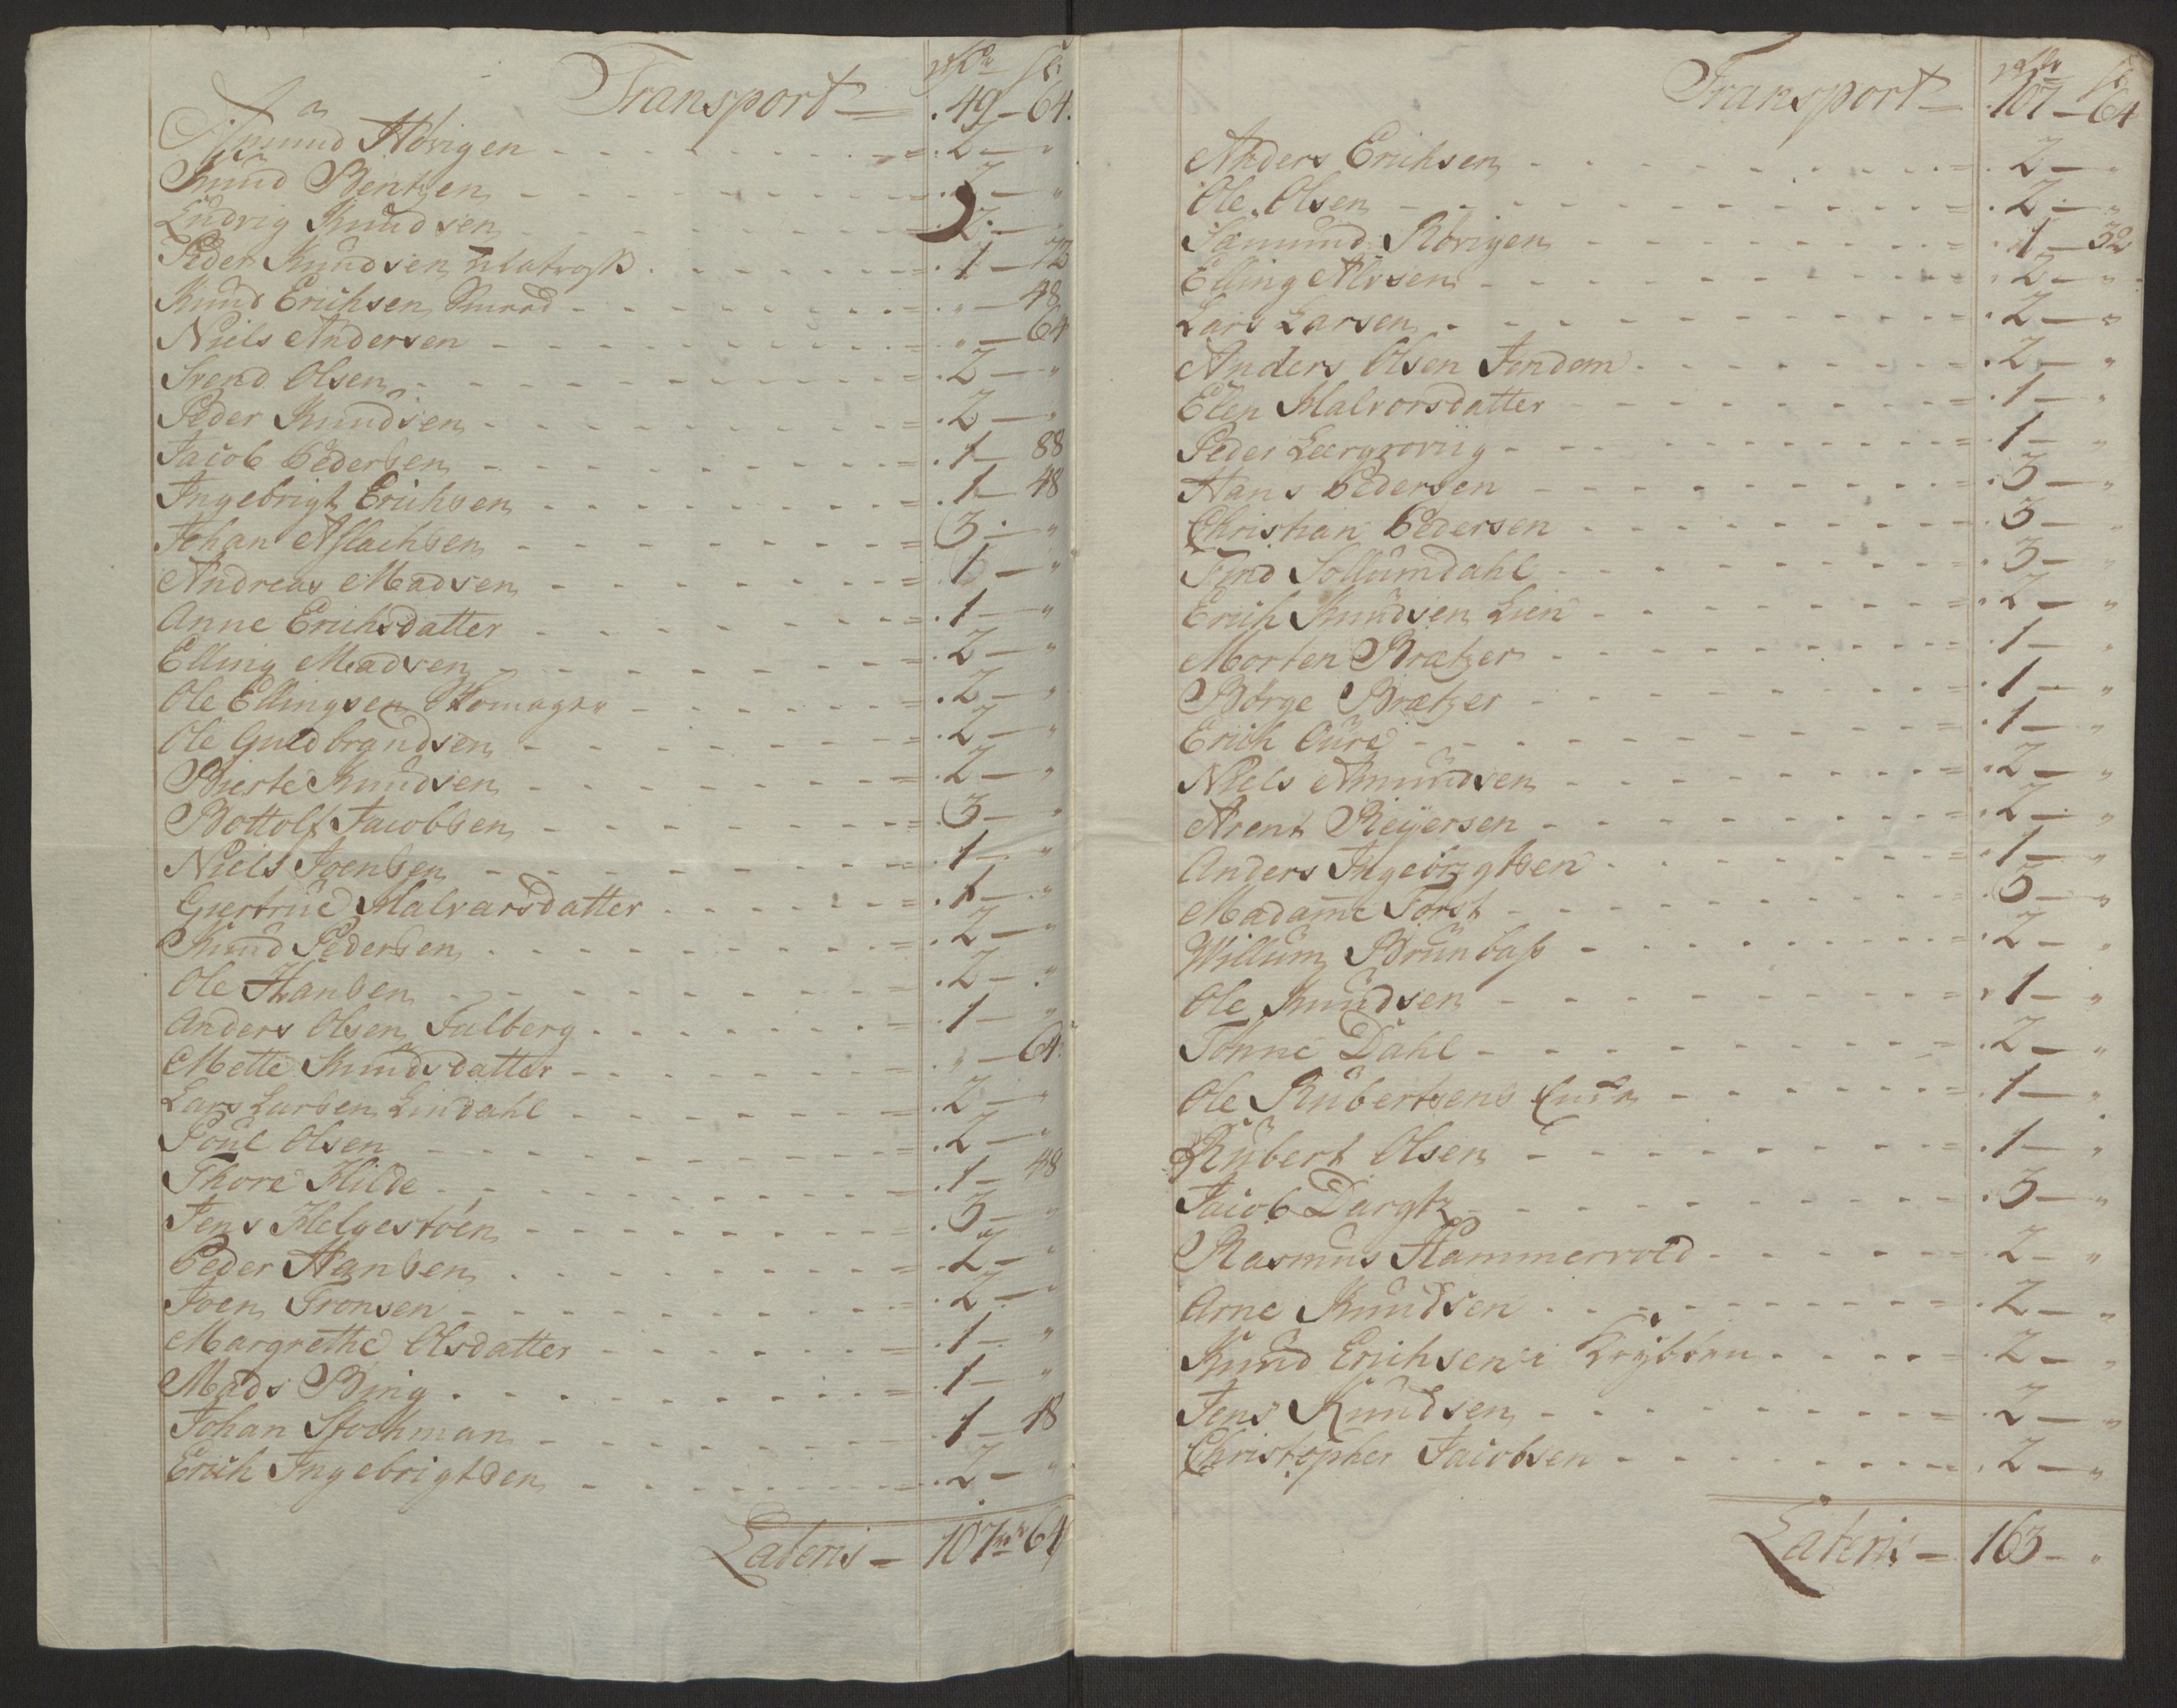 rdr ſs
Transport .49 - 64.
Amund Hövigen . 2 - "
Knud Bentzen . 2 - "
Ludvig Knudsen . 2 - "
Peder Knudsen Matroſs . 1 - 72
Knud Erichsen Smed . " - 48
Niels Andersen " - 64
Svend Olsen . 2 - "
Peder Knudsen . 2 - "
Jacob Pedersen . 1 - 88
Ingebrigt Erichsen . 1 - 48
Johan Aslachsen 3 - "
Andreas Madsen . 1 - "
Anne Erichsdatter . 1 - "
Elling Madsen . 2 - "
Ole Ellingsen Skomager . 2 - "
Ole Guldbrandsen . 2 - "
Bierte Knudsen . 2 - "
Bottolf Jacobsen . 3 - "
Niels Joensen . 1 - "
Giertrud Halvarsdatter . 1 - "
Knud Pedersen . 2 - "
Ole Hansen . 2 - "
Anders Olsen Falberg . 1 - "
Mette Knudsdatter " - 64
Lars Larsen Lindahl . 2 - "
Poul Olsen . 2 - "
Thore Hilde . 1 - 48
Jens Helgestöen . 3 - "
Peder Hansen . 2 - "
Joen Tronsen . 2 - "
Margrethe Olsdatter . 1 - "
Mads Bing . 1 - "
Johan Stockman . 1 - 48
Erich Ingebrigtsen . 2 - "
Lateris - 107 rdr 64
rdr ſs
Transport 107 - 64
Anders Erichsen . 2 - "
Ole Olsen . 2 - "
Samund Rörigen . 1 - 32
Elling Alvsen . 2 - "
Lars Larsen . 2 - "
Anders Olsen Jendem . 2 - "
Elen Halvorsdatter . 1 - "
Peder Leergroviig . 1 - "
Hans Pedersen . 3 - "
Christian Pedersen . 3 - "
Find Solloumdahl . 3 - "
Erich Knudsen Lien . 2 - "
Morten Bratzer . 1 - "
Börge Bratzer . 1 - "
Erich Oure . 1 - "
Niels Amundsen . 2 - "
Arent Reyersen . 2 - "
Anders Ingebrigtsen . 1 - "
Madame Forst . 3 - "
Willum Brun baſs . 2 - "
Ole Knudsen . 1 - "
Tönne Dahl . 2 - "
Ole Rubertsens Enke . 1 - "
Rubert Olsen . 1 - "
Jacob Dargtz . 3 - "
Rasmus Hammervold . 2 - "
Arne Knudsen . 2 - "
Knud Erichsen i . 2 - "
Jens Knudsen . 2 - "
Christopher Jacobsen . 2 - "
Lateris - 163 - "